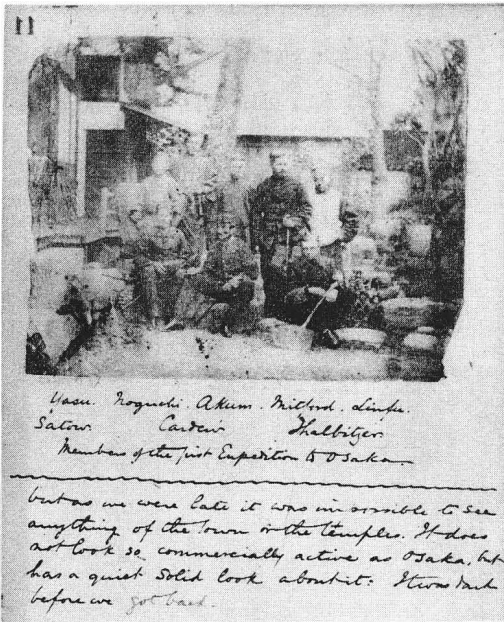 11
Yasu. Noguchi. Akum. Mitford. Linfu.
Satow. Cardew Thalbitzer
Members of the first Expedition to Osaka
but as we were late it was impossible to see
anything of the town or the temples. It does
not look so commercially active as Osaka, but
has a quiet solid look about it. It was dark
before we got back.